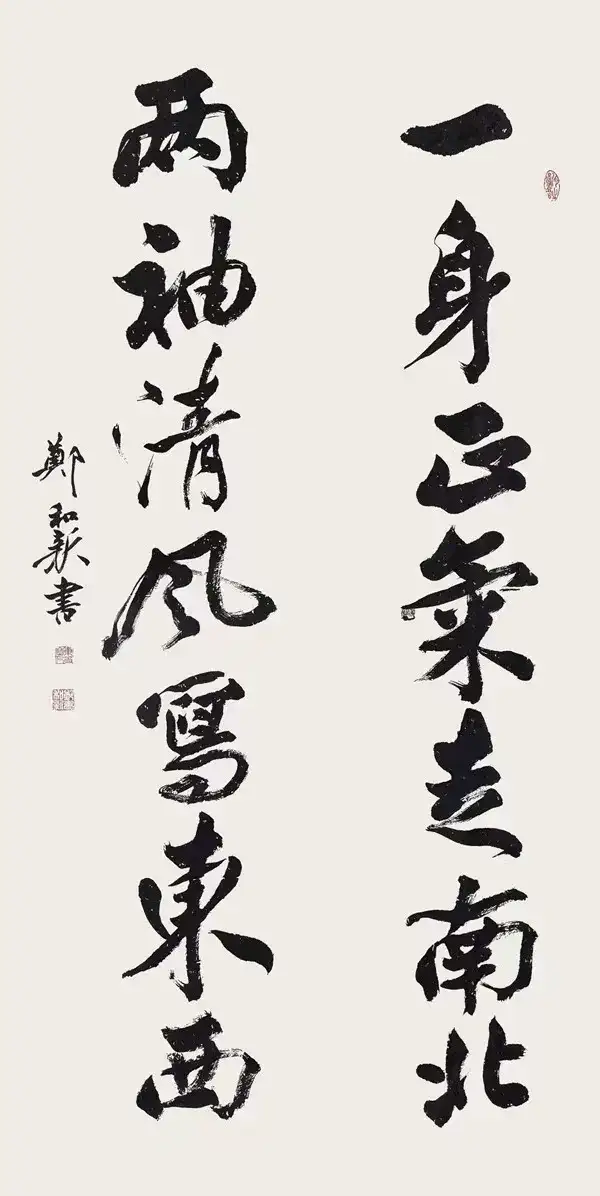 一身正氣走南北
两袖清風寫東西
鄭和新書